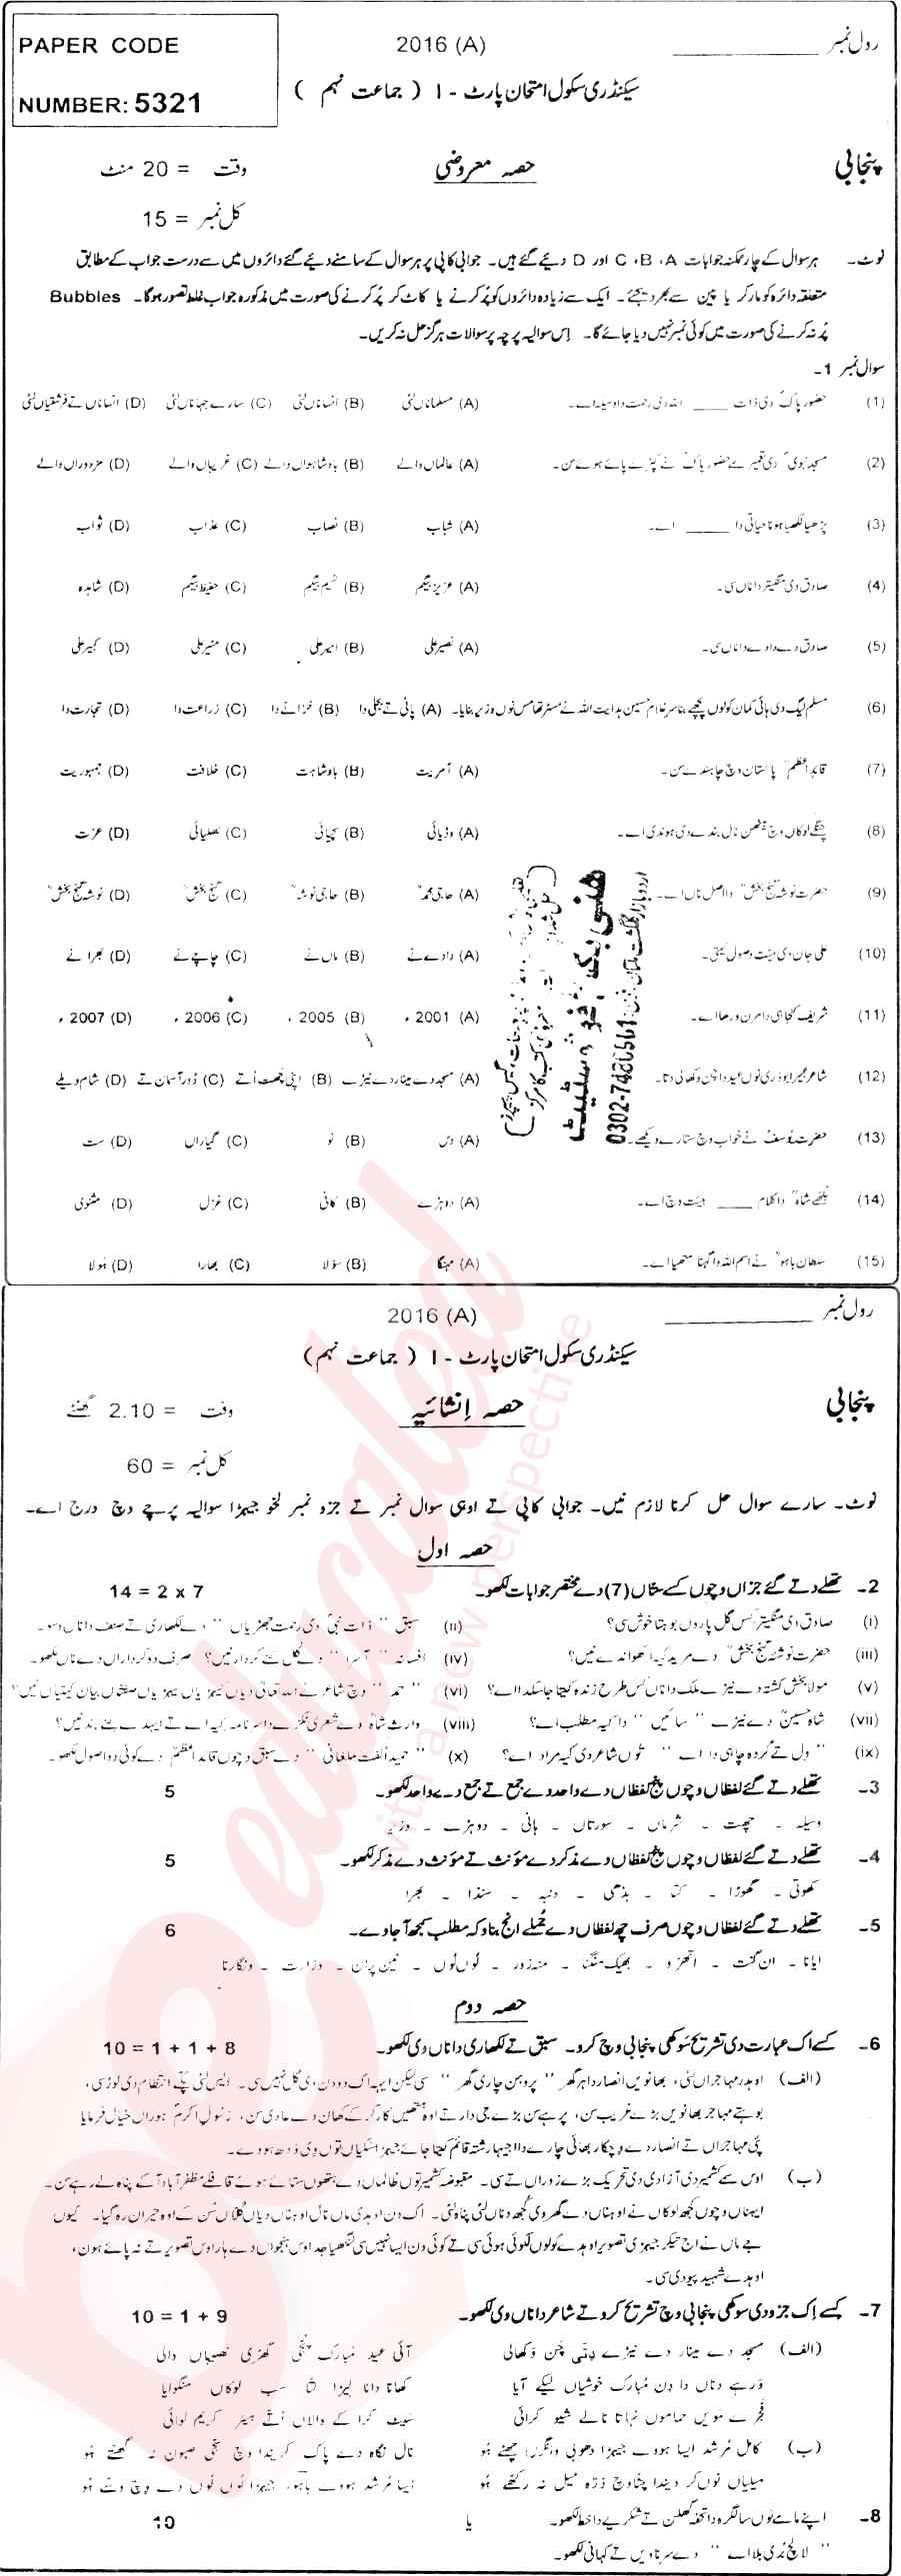 PAPER CODE
NUMBER: 5321
2016 (A)
رول نمبر
سیکنڈری سکول امتحان پارٹ - I ( جماعت نہم )
پنجابی
حصہ معروضی
وقت = 20 منٹ
کل نمبر = 15
نوٹ۔ ہر سوال کے چار ممکنہ جوابات A، B، C اور D دیئے گئے ہیں۔ جوابی کاپی پر ہر سوال کے سامنے دیئے گئے دائروں میں سے درست جواب کے مطابق
متعلقہ دائرہ کو مارکر یا پین سے بھر دیجئے۔ ایک سے زیادہ دائروں کو پُر کرنے یا کاٹ کر پُر کرنے کی صورت میں مذکورہ جواب غلط تصور ہوگا۔ Bubbles
پُر نہ کرنے کی صورت میں کوئی نمبر نہیں دیا جائے گا۔ اِس سوالیہ پرچہ پر سوالات ہرگز حل نہ کریں۔
سوال نمبر 1۔
(1) حضور پاکؐ دی ذات ____ اللہ دی رحمت دا وسیلہ اے۔ (A) مسلماناں لئی (B) انساناں لئی (C) سارے جہاناں لئی (D) انساناں تے فرشتیاں لئی
(2) مسجد نبویؐ دی تعمیر ویلے حضور پاکؐ نے کپڑے پائے ہوئے سن۔ (A) عالماں والے (B) بادشاہواں والے (C) غریباں والے (D) مزدوراں والے
(3) پڑھیا لکھیا ہونا حیاتی دا ____ اے۔ (A) شباب (B) نصاب (C) عذاب (D) ثواب
(4) صادق دی منگیتر دا ناں سی۔ (A) عزیز بیگم (B) نسیم بیگم (C) حفیظ بیگم (D) شاہدہ
(5) صادق دے دادے دا ناں سی۔ (A) نصیر علی (B) امیر علی (C) منیر علی (D) کبیر علی
(6) مسلم لیگ دی ہائی کمان کولوں پچھے بنا سر غلام حسین ہدایت اللہ نے مسٹر تھامس نوں وزیر بنایا۔ (A) پانی تے بجلی دا (B) خزانے دا (C) زراعت دا (D) تجارت دا
(7) قائد اعظمؒ پاکستان وچ چاہندے سن۔ (A) آمریت (B) بادشاہت (C) خلافت (D) جمہوریت
(8) چنگے لوکاں وچ بیٹھن نال بندے دی ہوندی اے۔ (A) وڈیائی (B) سچیائی (C) بھلیائی (D) عزت
(9) حضرت نوشہ گنج بخشؒ دا اصل ناں اے۔ (A) حاجی محمدؒ (B) حاجی نوشہؒ (C) گنج بخشؒ (D) نوشہ گنج بخشؒ
(10) علی جان دی میت وصول کیتی۔ (A) دادے نے (B) ماں نے (C) چاچے نے (D) بھرا نے
(11) شریف کنجاہی دا مرن ورھا اے۔ (A) 2001ء (B) 2005ء (C) 2006ء (D) 2007ء
(12) شاعر ابوذری نوں عید دا چن وکھالی دتا۔ (A) مسجد دے مینار دے نیڑے (B) اپنی چھت اُتے (C) دُور آسمان تے (D) شام ویلے
(13) حضرت یوسفؑ نے خواب وچ ستارے ویکھے۔ (A) دس (B) نو (C) گیاراں (D) ست
(14) بلھے شاہؒ دا کلام ____ ہیئت وچ اے۔ (A) دوہڑے (B) کافی (C) غزل (D) مثنوی
(15) سلطان باہوؒ نے اسم اللہ دا گہنا متھیا اے۔ (A) مہنگا (B) سؤلا (C) بھارا (D) ہولا
ھنی بکس فوٹوسٹیٹ
اردو بازار گلگشت ملتان فون:
2016 (A)
رول نمبر
سیکنڈری سکول امتحان پارٹ - I ( جماعت نہم )
پنجابی
حصہ اِنشائیہ
وقت = 2.10 گھنٹے
کل نمبر = 60
نوٹ۔ سارے سوال حل کرنا لازم نیں۔ جوابی کاپی تے اوہی سوال نمبر تے جزو نمبر لخو جیہڑا سوالیہ پرچے وچ درج اے۔
حصہ اول
2۔ تھلے دتے گئے جزاں وچوں کسے ستاں (7) دے مختصر جوابات لکھو۔ 14 = 2 x 7
(i) صادق دی منگیتر کس گل پاروں بوہتا خوش سی؟ (ii) سبق "ذات نبیؐ دی رحمت جھڑیاں" دے لکھاری تے صنف دا ناں دسو۔
(iii) حضرت نوشہ گنج بخشؒ دے مرید کیہ اکھواندے نیں؟ (iv) افسانہ "آسرا" دے کل کنے کردار نیں؟ صرف دو کرداراں دے ناں لکھو۔
(v) مولا بخش کشتہ دے نیڑے ملک دا ناں کس طرح زندہ کیتا جا سکدا اے؟ (vi) "حمد" وچ شاعر نے اللہ تعالیٰ دیاں کیہڑیاں کیہڑیاں صفتاں بیان کیتیاں نیں؟
(vii) شاہ حسینؒ دے نیڑے "سائیں" دا کیہ مطلب اے؟ (viii) وارث شاہؒ دے شعری ٹکڑے دا سرنامہ کیہ اے تے ایہدے کنے بند نیں؟
(ix) "دل تے گردہ چاہی دا اے" توں شاعر دی کیہ مراد اے؟ (x) "حمید اُلفت ملغانی" دے سبق وچوں قائد اعظمؒ دے کوئی دو اصول لکھو۔
3۔ تھلے دتے گئے لفظاں وچوں پنج لفظاں دے واحد دے جمع تے جمع دے واحد لکھو۔ 5
وسیلہ ۔ چھت ۔ شرماں ۔ سورتاں ۔ ہانی ۔ دوہڑے ۔ وزیر
4۔ تھلے دتے گئے لفظاں وچوں پنج لفظاں دے مذکر دے مؤنث تے مؤنث دے مذکر لکھو۔ 5
کھوتی ۔ گھوڑا ۔ کتا ۔ بڈھی ۔ دنبہ ۔ سنڈا ۔ بھرا
5۔ تھلے دتے گئے لفظاں وچوں صرف چھ لفظاں دے جُملے انج بناؤ کہ مطلب سمجھ آ جاوے۔ 6
ایانا ۔ ان گنت ۔ اتھرو ۔ بھیک منگنا ۔ منہ زور ۔ لُوں لُوں ۔ نین پران ۔ وزارت ۔ ونگارنا
حصہ دوم
6۔ کسے اک عبارت دی تشریح سوکھی پنجابی وچ کرو۔ سبق تے لکھاری دا ناں وی لکھو۔ 10 = 1 + 1 + 8
(الف) اوہدر مہاجراں لئی، بھانویں انصار دا ہر گھر "پروہن چاری گھر" سی لیکن ایہہ اک دو دن دی گل نہیں سی۔ ایس لئی پکے انتظام دی لوڑ سی،
بوہتے مہاجر بھانویں بڑے غریب سن، پر ہے سن بڑے جی دار تے اوہ ہتھیں کار کر کے کھان دے عادی سن، رسول اکرمؐ ہوراں خیال فرمایا
پئی مہاجراں تے انصار دے وچکار بھائی چارے دا اجیہا رشتہ قائم کیتا جائے جیہڑا سکیاں توں وی ودھ ہووے۔
(ب) اوس سمے کشمیر دی آزادی دی تحریک بڑے زوراں تے سی۔ مقبوضہ کشمیر توں ظالماں دے ہتھوں ستائے ہوئے قافلے مظفر آباد آ کے پناہ لے رہے سن۔
ایہناں وچوں کجھ لوکاں نے اوہناں دے گھر وی کُجھ دناں لئی پناہ لئی۔ اک دن اوہدی ماں نال اوہناں دیاں گلاں سُن کے اوہ حیران رہ گیا۔ کیوں
جے ماں نے اج تیکر جیہڑی تصویر اوہدے کولوں لکوئی ہوئی سی تے کوئی دن ایسا نہیں سی لنگھیا جد اوس ہنجواں دے ہار اوس تصویر تے نہ پائے ہون،
اوہدے شہید پیو دی سی۔
7۔ کسے اِک جزو دی سوکھی پنجابی وچ تشریح کرو تے شاعر دا ناں وی لکھو۔ 10 = 1 + 9
(الف) مسجد دے مینار دے نیڑے دِتی چن وکھالی آئی عید مُبارک پنجی گھڑی نصیباں والی
ورہے دناں دا دِن مُبارک خوشیاں لیکے آیا کھانا دانا لیڑا لتا سب لوکاں منگوایا
فجرے سویں حماموں نہاتا نالے شیو کرائی سیٹ کرا کے والاں اُتے ہیئر کریم لوائی
(ب) کامل مُرشد ایسا ہووے جیہڑا دھوبی وانگوں چھٹے ہُو نال نگاہ دے پاک کریندا وچ سجی صبون نہ گھتے ہُو
میلیاں نوں کر دیندا چٹا وچ ذرّہ میل نہ رکھے ہُو ایسا مُرشد ہووے باہُو، جیہڑا لُوں لُوں دے وچ وسّے ہُو
8۔ اپنے مامے نوں سالگرہ دا تحفہ گھلن تے شکریے دا خط لکھو۔ یا 10
"لالچ بُری بلا اے" دے سرناویں تے کہانی لکھو۔
beeducated
with a new perspective